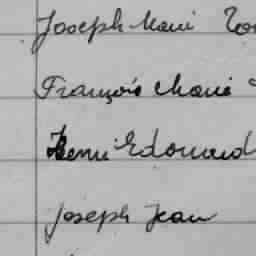 Joseph Marie
François Marie
Henri Edouard
Joseph Jean